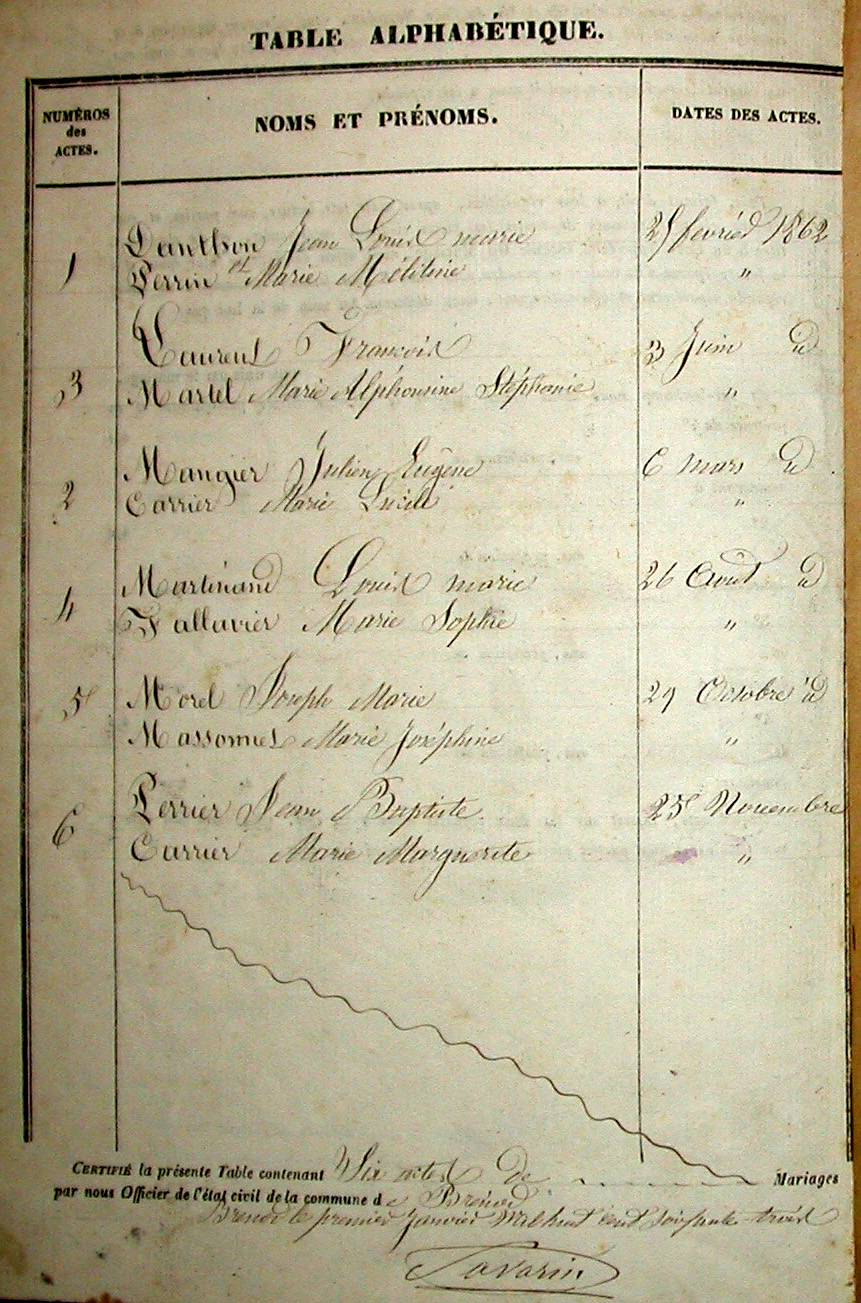 TABLE ALPHABÉTIQUE.
NUMÉROS des ACTES. NOMS ET PRÉNOMS. DATES DES ACTES.
Danthon Jean Louis marie 25 fevrier 1862
1 Perrin et Marie Mélitine "
Laurent François 3 Juin d
3 Martel Marie Alphonsine Stéphanie "
Mangier Julien Eugène 6 mars d
2 Carrier Marie Lucile "
Martinand Louis marie 26 Aout d
4 Tallavier Marie Sophie "
5 Morel Joseph Marie 29 Octobre d
Massonnet Marie Joséphine "
Perrier Jean Baptiste 25 Novembre
6 Carrier Marie Marguerite "
CERTIFIÉ la présente Table contenant Six actes De Mariages
par nous Officier de l'état civil de la commune d e Brenod
Brenod le premier Janvier Mil huit cent soixante trois
Savarin